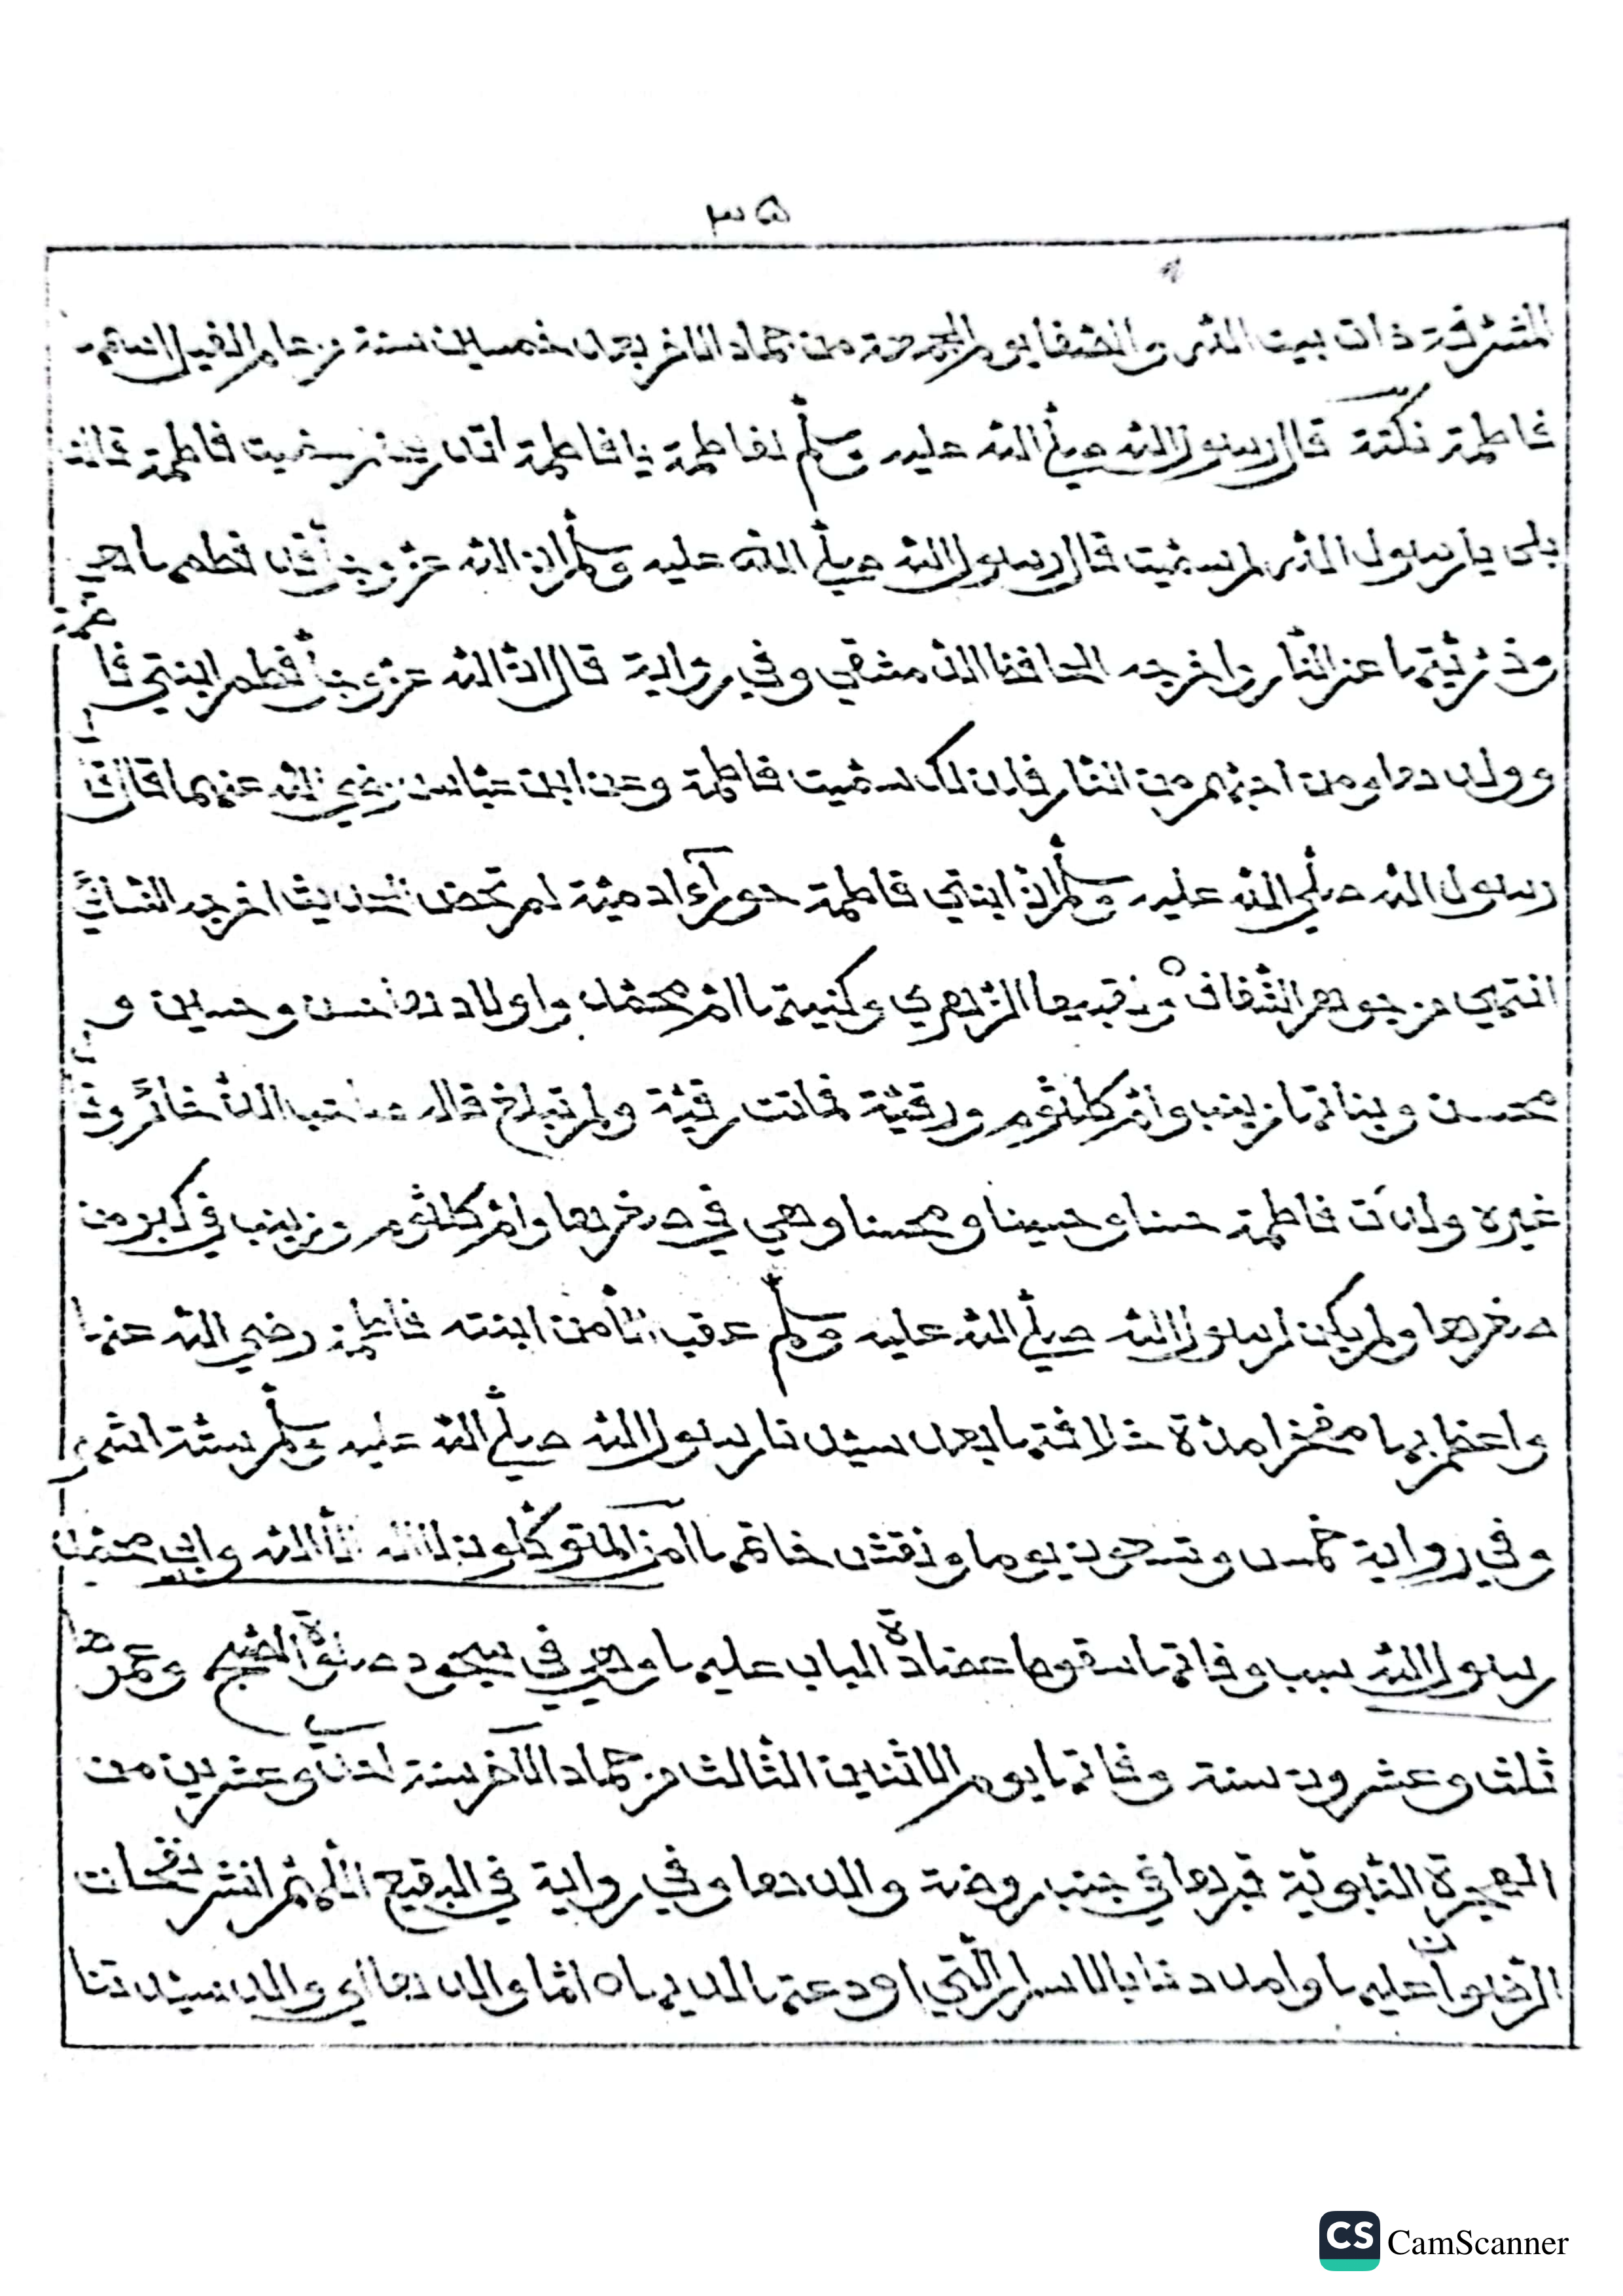 ۳۵
المشرفة ذات بيت الله والصفا يوم الجمعة من جماد الآخر بعد خمسين سنة من عام الفيل اسمها
فاطمة نكتة قال رسول الله صلى الله عليه وسلم لفاطمة يا فاطمة لم سميت فاطمة قالت
بلى يا رسول الله لم سميت قال رسول الله صلى الله عليه وسلم ان الله عزوجل قد فطمها
وذريتها عن النار واخرجه الحافظ الدمشقي وفي رواية قال ان الله عزوجل فطم ابنتي فاطمة
وولدها ومن احبهم من النار فلذلك سميت فاطمة وعن ابن عباس رضي الله عنهما قال قال
رسول الله صلى الله عليه وسلم ان ابنتي فاطمة حورآء ادمية لم تحض الحديث اخرجه النسائي
انتهى من جوهر الشفاف ولقبها الزهري وكنيتها ام محمد واولادها حسن وحسين و
محسن وبناتها زينب وام كلثوم ورقية فماتت رقية ولم تبلغ قال صاحب الذخائر و
غيره ولدت فاطمة حسنا وحسينا ومحسنا وهي في صغرها وام كلثوم وزينب في كبر من
صغرها ولم يكن لرسول الله صلى الله عليه وسلم عقب الا من ابنته فاطمة رضي الله عنها
واعظم بها مفخرا مدة خلافتها بعد سيدنا رسول الله صلى الله عليه وسلم ستة اشهر
وفي رواية خمس وتسعون يوما ونقش خاتمها امن المتوكلون لا اله الا الله وابي محمد
رسول الله سبب وفاتها سقوط عضادة الباب عليها وهي في سجود صلوة الصبح وعمرها
ثلث وعشرون سنة وفاتها يوم الاثنين الثالث من جماد الآخر سنة احدى وعشرين من
الهجرة النبوية قبرها في جنب روضة والدها وفي رواية في البقيع اللهم انشر نفحات
الرضوان عليها وامددنا بالاسرار التي اودعتها لديها ه اما والدها اي والد سيدتنا
CS CamScanner